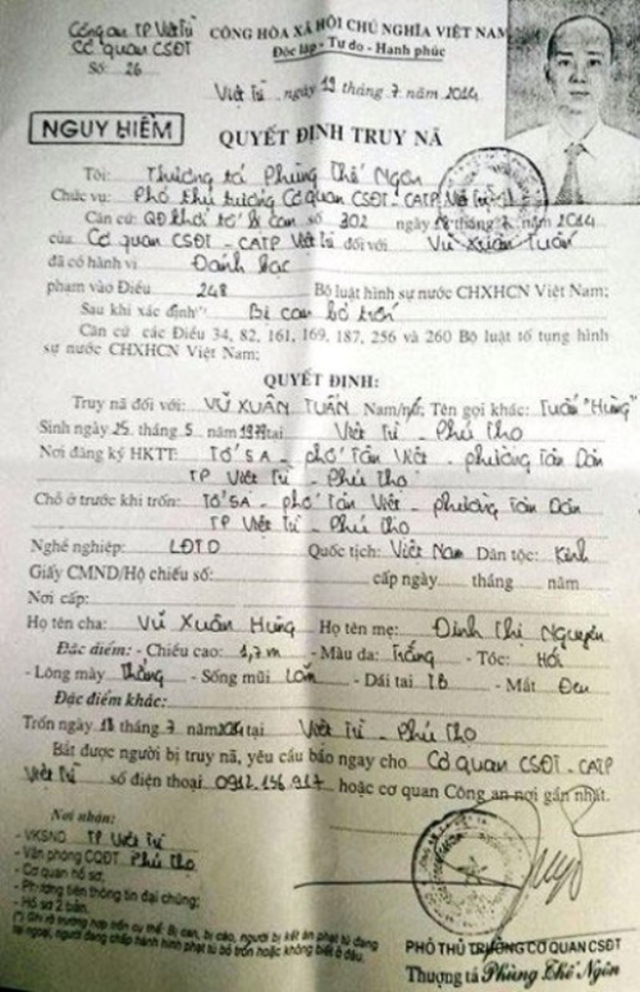 Công an TP Việt Trì
Cơ quan CSĐT
Số 26
CỘNG HÒA XÃ HỘI CHỦ NGHĨA VIỆT NAM
Độc lập - Tự do - Hạnh phúc
Việt Trì, ngày 19 tháng 7 năm 2014
NGUY HIỂM
QUYẾT ĐỊNH TRUY NÃ
Tôi: Thượng tá Phùng Thế Ngôn
Chức vụ: Phó thủ trưởng Cơ quan CSĐT - CATP Việt Trì
Căn cứ: QĐ khởi tố bị can số 302 ngày tháng 7 năm 2014
của Cơ quan CSĐT - CATP Việt Trì đối với Vũ Xuân Tuấn
đã có hành vi Đánh bạc
phạm vào Điều 248 Bộ luật hình sự nước CHXHCN Việt Nam;
Sau khi xác định(*) Bị can bỏ trốn
Căn cứ các Điều 34, 82, 161, 169, 187, 256 và 260 Bộ luật tố tụng hình
sự nước CHXHCN Việt Nam;
QUYẾT ĐỊNH:
Truy nã đối với: VŨ XUÂN TUẤN Nam/nữ; Tên gọi khác: Tuấn "Hùng"
Sinh ngày 25 tháng 5 năm tại Việt Trì - Phú Thọ
Nơi đăng ký HKTT: Tổ 5A - phố Tân Việt - phường Tân Dân
TP Việt Trì - Phú Thọ
Chỗ ở trước khi trốn: Tổ 5A - phố Tân Việt - phường Tân Dân
TP Việt Trì - Phú Thọ
Nghề nghiệp: LĐTD Quốc tịch: Việt Nam Dân tộc: Kinh
Giấy CMND/Hộ chiếu số: cấp ngày tháng năm
Nơi cấp:
Họ tên cha: Vũ Xuân Hùng Họ tên mẹ: Đinh Thị Nguyên
Đặc điểm: - Chiều cao: 1,7 m - Màu da: Trắng - Tóc: Hói
- Lông mày Thẳng - Sống mũi Lõm - Dái tai TB - Mắt Đen
Đặc điểm khác:
Trốn ngày 18 tháng 7 năm 2014 tại Việt Trì - Phú Thọ
Bắt được người bị truy nã, yêu cầu báo ngay cho Cơ quan CSĐT - CATP
Việt Trì số điện thoại 0912.156.917 hoặc cơ quan Công an nơi gần nhất.
Nơi nhận:
- VKSND TP Việt Trì
- Văn phòng CQĐT Phú Thọ
- Cơ quan hồ sơ;
- Phương tiện thông tin đại chúng;
- Hồ sơ 2 bản.
(*) Ghi rõ trường hợp trốn cụ thể: Bị can, bị cáo, người bị kết án phạt tù đang
tại ngoại, người đang chấp hành hình phạt tù bỏ trốn hoặc không biết ở đâu.
PHÓ THỦ TRƯỞNG CƠ QUAN CSĐT
Thượng tá Phùng Thế Ngôn